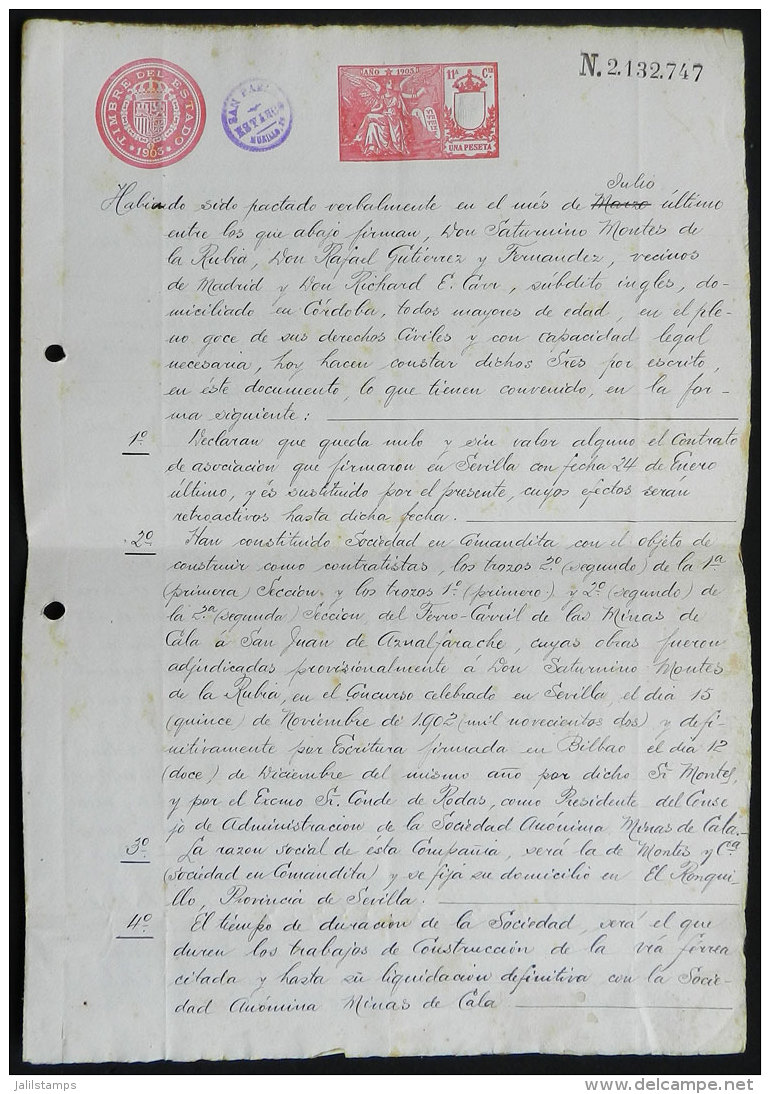 TIMBRE DEL ESTADO
* 1903 *
ESTANCO
AÑO 1903
11ª Cª
UNA PESETA
N. 2.132.747
Julio
Habiendo sido pactado verbalmente en el més de Marzo último
entre los que abajo firman, Don Saturnino Montes de
la Rubia, Don Rafael Gutiérrez y Fernandez, vecinos
de Madrid y Don Richard E. Carr, súbdito ingles, do-
miciliado en Córdoba, todos mayores de edad, en el ple-
no goce de sus derechos Civiles y con capacidad legal
necesaria, hoy hacen constar dichos Sres por escrito,
en éste documento, lo que tienen convenido, en la for-
ma siguiente:
1º Declaran que queda nulo y sin valor alguno el Contrato
de asociacion que firmaron en Sevilla con fecha 24 de Enero
último, y és sustituido por el presente, cuyos efectos serán
retroactivos hasta dicha fecha.
2º Han constituido Sociedad en Comandita con el objeto de
construir como contratistas, los trozos 2º (segundo) de la 1ª
(primera) Sección y los trozos 1º (primero) y 2º (segundo) de
la 2ª (segunda) Seccion, del Ferro-Carril de las Minas de
Cala á San Juan de Aznalfarache, cuyas obras fueron
adjudicadas provisionalmente á Don Saturnino Montes
de la Rubia, en el Concurso celebrado en Sevilla, el dia 15
(quince) de Noviembre de 1.902 (mil novecientos dos) y defi-
nitivamente por Escritura firmada en Bilbao el dia 12
(doce) de Diciembre del mismo año por dicho Sr. Montes,
y por el Excmo Sr. Conde de Rodas, como Presidente del Conse
jo de Administracion de la Sociedad Anónima, Minas de Cala.
3º La razon social de ésta Compañia, será la de Montes y Cª
(Sociedad en Comandita) y se fija su domicilio en El Ronqui-
llo, Provincia de Sevilla.
4º El tiempo de duracion de la Sociedad, será el que
duren los trabajos de Construcción de la via férrea
citada y hasta su liquidación definitiva con la Socie-
dad Anónima Minas de Cala
jalilstamps
www.delcampe.net